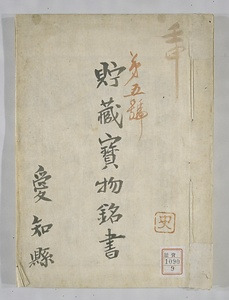 第五號
貯藏寳物銘書
愛知縣
史
1090
9